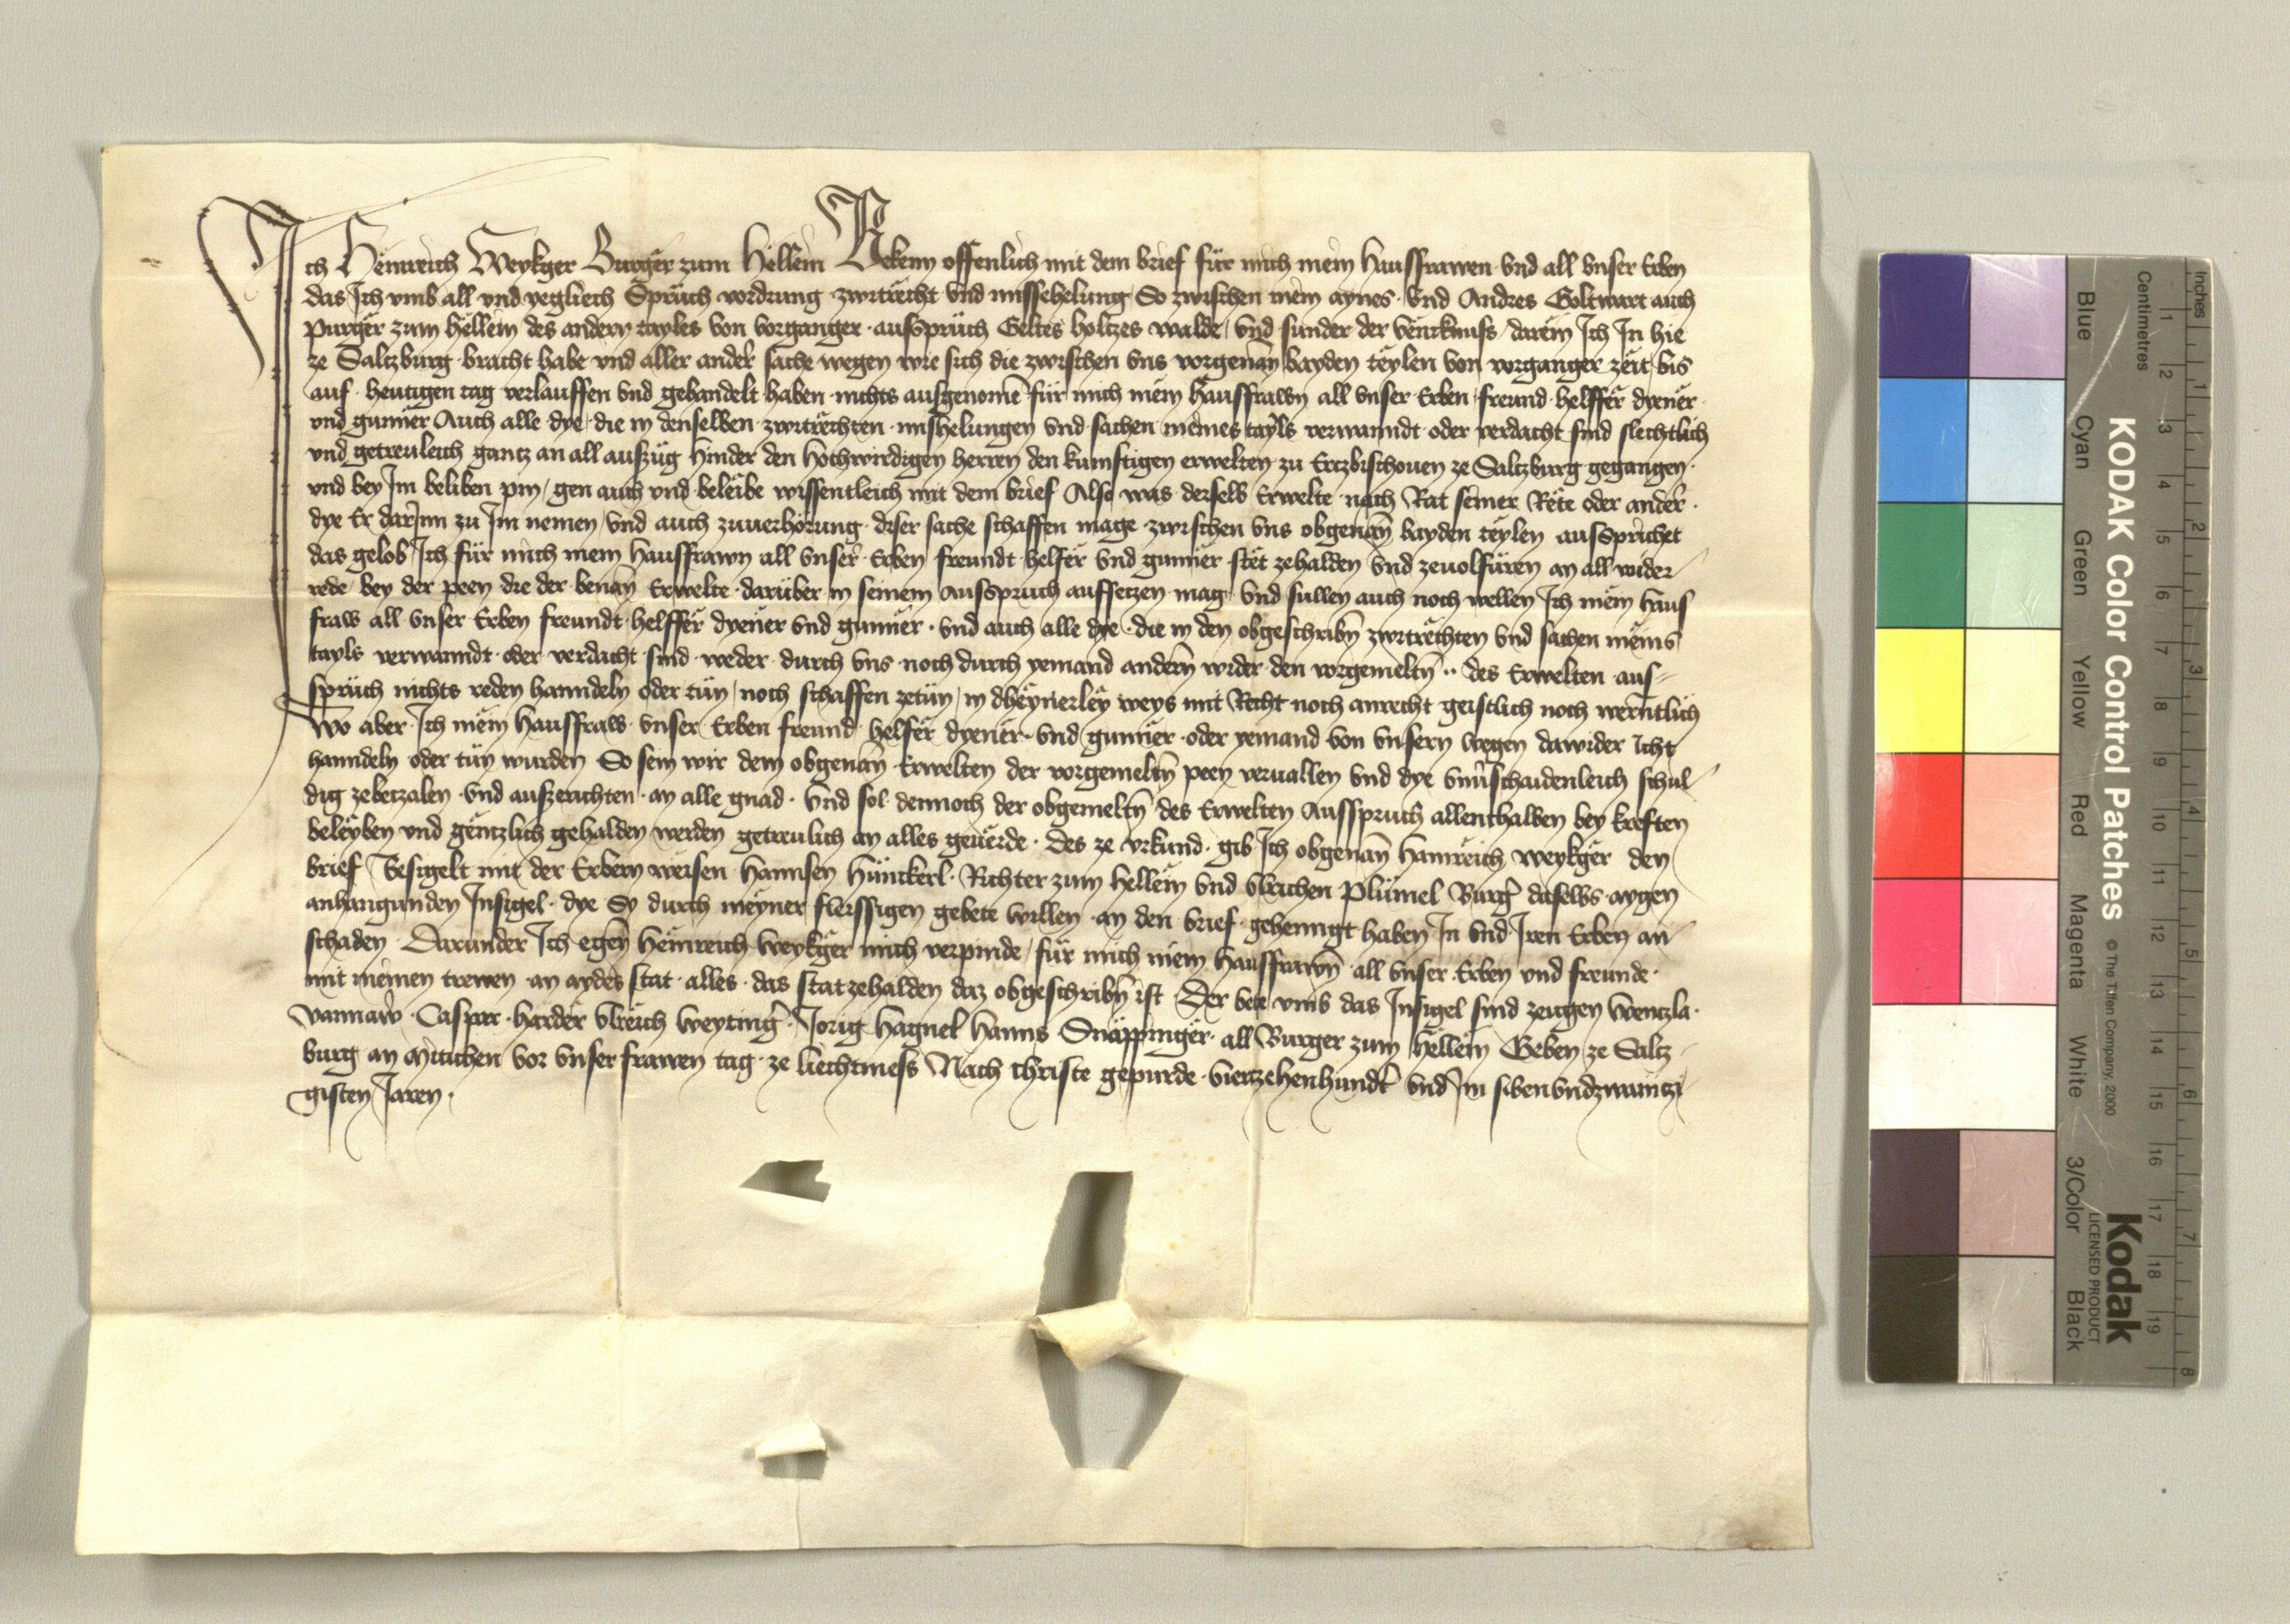 Ich Heinreich Weykger Burger zum Hëllein Bekenn offenlich mit dem brief für mich mein hausfrawen vnd all vnser Erben
das Ich vmb all vnd yegliech Sprüch vordrung zwitrëcht vnd misshelung So zwischen mein aynes vnd Andres Goltwart auch
purger zum hëllein des andern tayles von vorganger ausspruch Geltes holtzes walde vnd sunder der venckhnuss darein Ich In hie
ze Saltzburg bracht habe vnd aller ander sache wegen wie sich die zwischen vns vorgenan̄ bayden teylen von vorganger zeit bis
auf heutigen tag verlauffen vnd gehandelt haben nichts ausgenomē für mich mein hausfrawn all vnser Erben freund helffer dyener
vnd gunner Auch alle dye die in denselben zwitrëchten mishelungen vnd sachen meines tayls verwanndt oder verdacht sind slechtlich
vnd getreuleich gantz an all auszüg hinder den hochwirdigen herren den kunftigen erwelten zu Ertzbischouen ze Saltzburg gegangen
vnd bey Im beliben pin / gen auch vnd beleibe wissentleich mit dem brief Also was derselb Erwelte nach Rat seiner Rëte oder ander
dye Er darInn zu Im nemen vnd auch zuuerhörung diser sache schaffen mage zwischen vns obgenan̄ bayden teylen ausSprichet
das gelob Ich für mich mein hausfrawn all vnser Erben freundt helfer vnd gunner stët zehalden vnd zeuolfüren an all wider
rede bey der peen die der benan̄ Erwelte darüber in seinem ausspruch aufsetzen mag vnd sullen auch noch wellen Ich mein haus
fraw all vnser Erben freundt helffer dyener vnd gunner vnd auch alle dye die in den obgeschribn̄ zwitrëchten vnd sachen meins
tayls verwanndt oder verdacht sind weder durch vns noch durch yemand andern wider den vorgemeltn̄ des Erwelten aus-
sprüch nichts reden hanndeln oder tün / noch schaffen zetün / in dheynerley weys mit Recht noch anrecht geistlich noch werntlich
Wo aber Ich mein hausfraw vnser Erben freund helfer dyener vnd gunner oder yemand von vnsern wegen dawider Icht
hanndeln oder tün wurden So sein wir dem obgenan̄ Erwelten der vorgemeltn̄ peen veruallen vnd dye vnuschaidenleich schul
dig zebetzalen vnd auszerichten an alle gnad vnd sol dennoch der obgemeltn̄ des Erwelten Ausspruch allenthalben bey kreften
beleyben vnd gëntzlich gehalden werden getreulich an alles geuërde Des ze vrkund gib Ich obgenan̄ Hainreich weykger den
brief Besigelt mit der Erbern weisen Hannsen Hünckerl Richter zum Hellein vnd vlreichen Plümel Burg̓ daselbs aygen
anhangunden Insigel dye Sy durch meyner fleissigen gebete willen an den brief gehenngt haben In vnd Iren Erben an
schaden Darunder Ich egen̄ Heinreich Weykger mich verpinde für mich mein Hausfrawn̄ all vnser Erben vnd freunde
mit meinen trewen an aydes stat alles das stat zehalden daz obgeschribn̄ ist Der bete vmb das Insigel sind zeugen Wentzla
Casper harder vlreich Weyting̓ Jorig Hagnel Hanns Snäppinger all Burger zum Hëllein Geben ze Saltz
burg an Mitichen vor vnser frawen tag ze liechtmess Nach Christe gepurde viertzehenhundt̓ vnd Im sibenvndzwaintzi
gisten Jaren
KODAK Color Control Patches © The Tiffen Company, 2000
Kodak
LICENSED PRODUCT
Blue Cyan Green Yellow Red Magenta White 3/Color Black
Inches 1 2 3 4 5 6 7 8
Centimetres 1 2 3 4 5 6 7 8 9 10 11 12 13 14 15 16 17 18 19